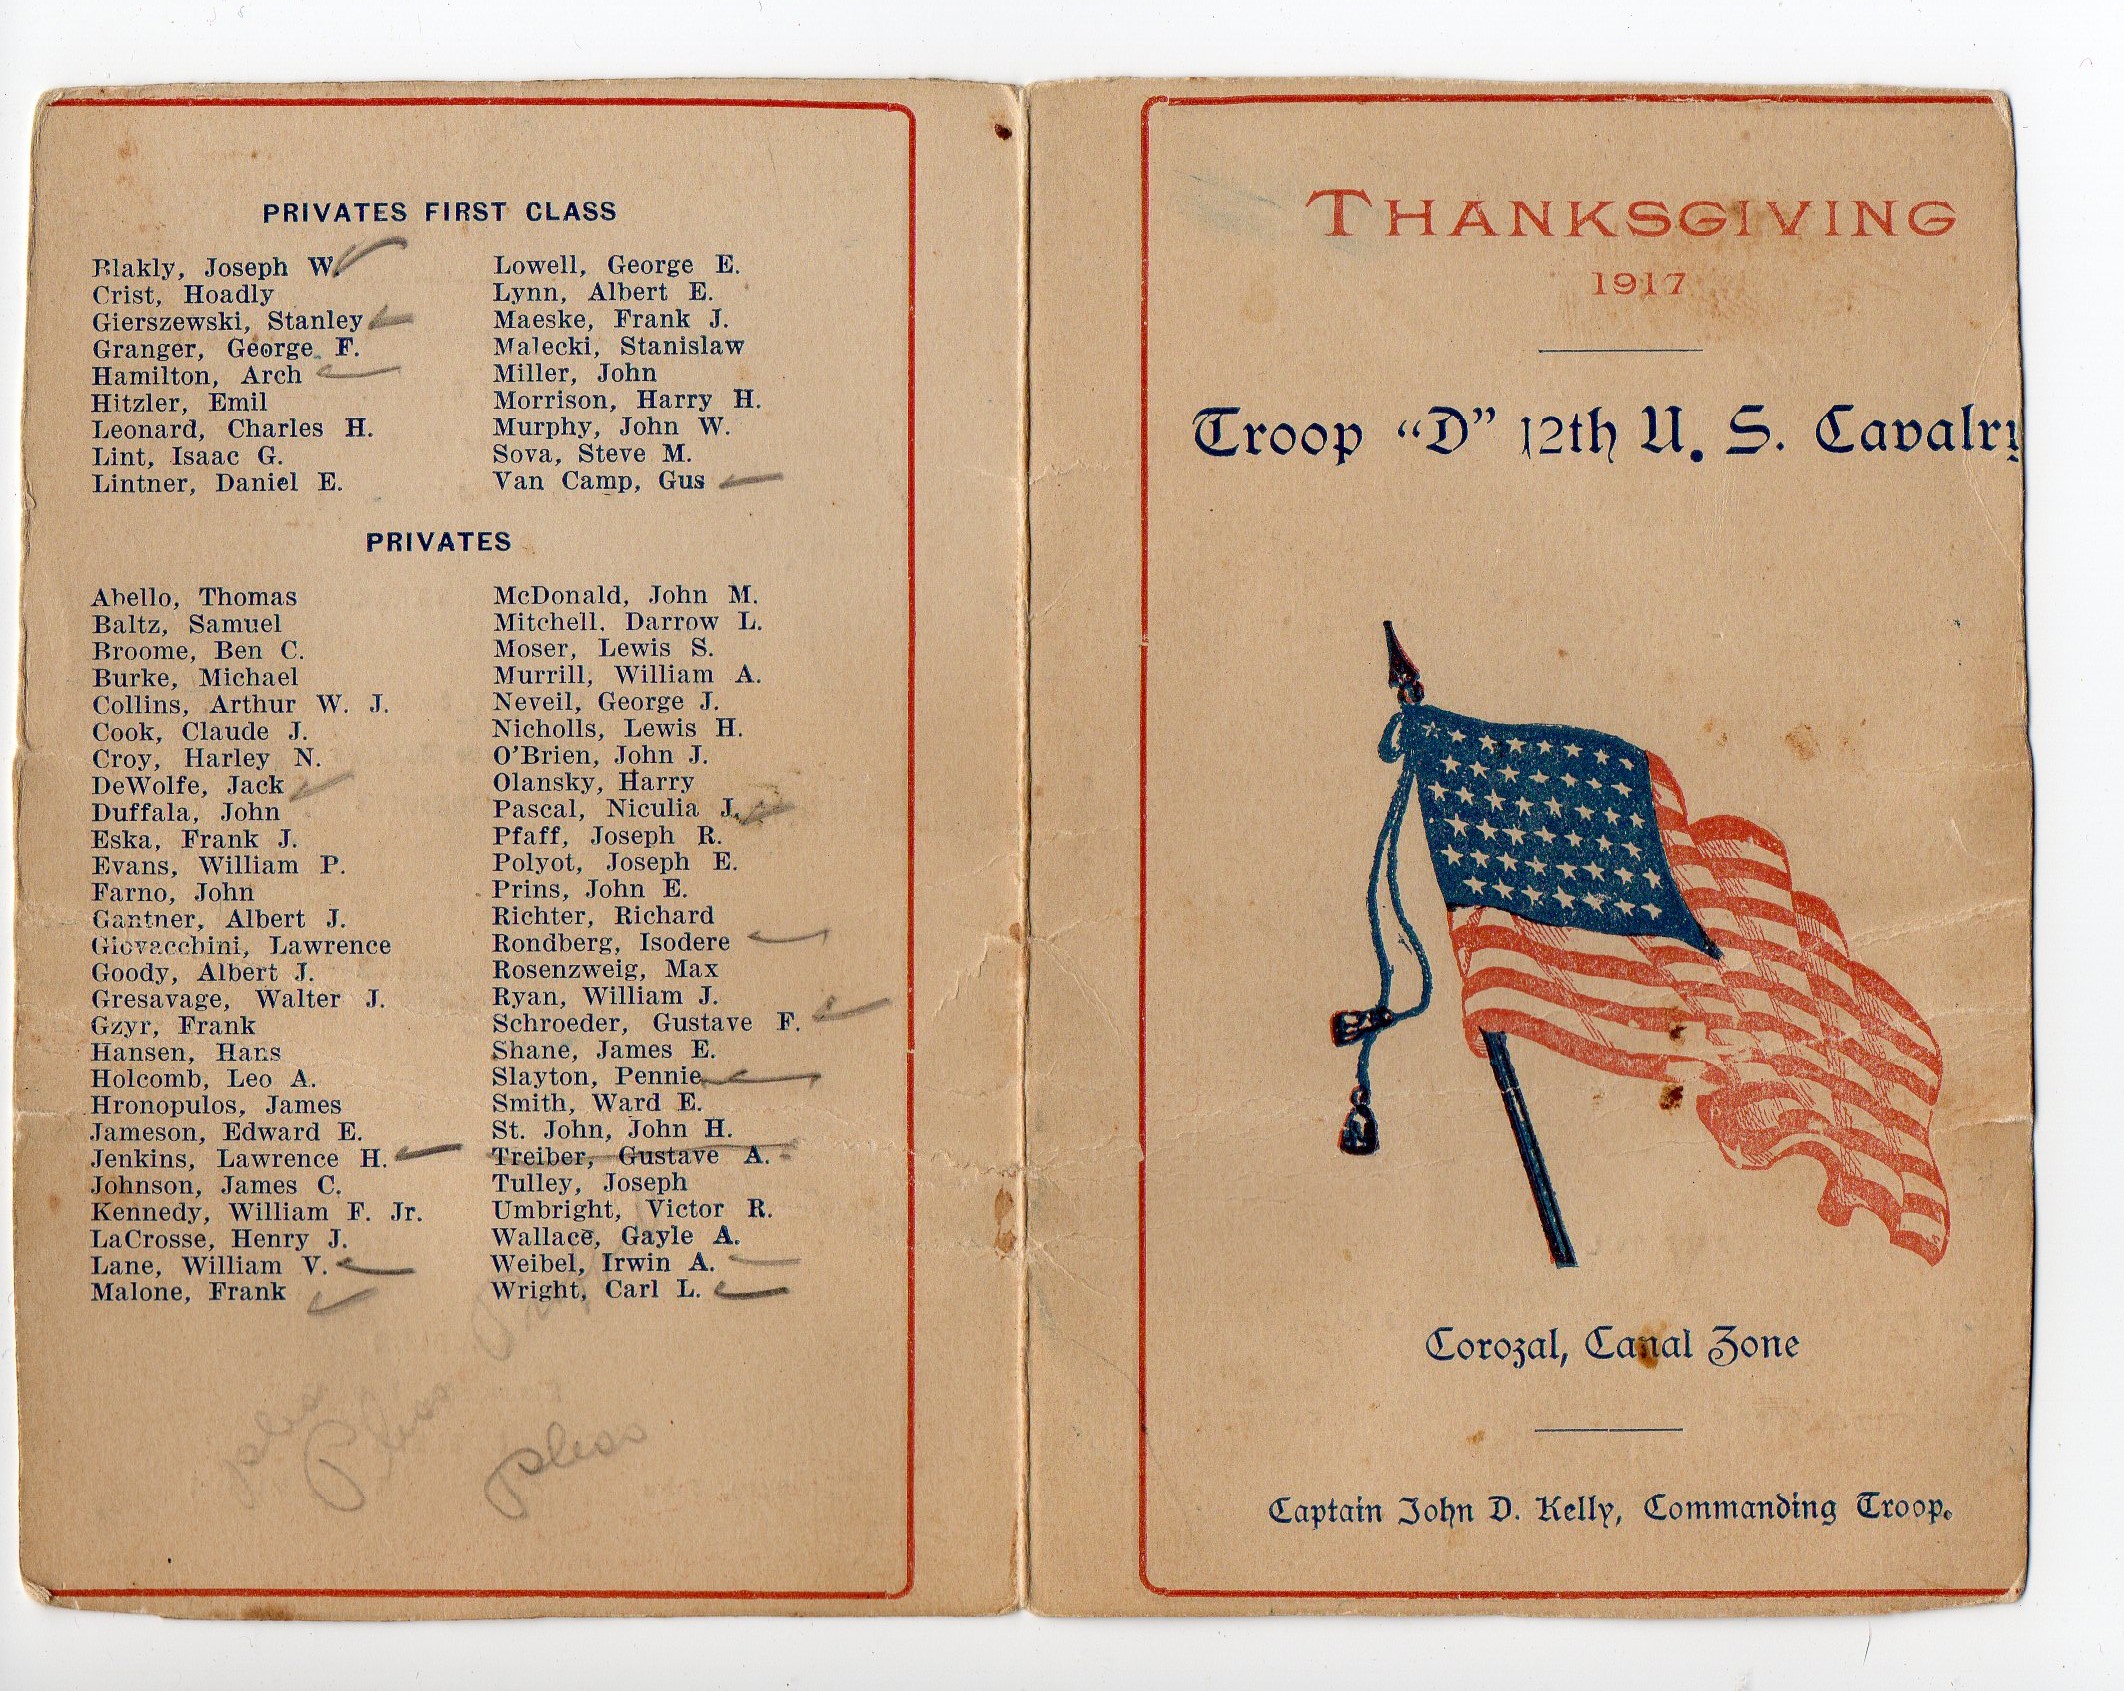 PRIVATES FIRST CLASS
Blakly, Joseph W.
Crist, Hoadly
Gierszewski, Stanley
Granger, George F.
Hamilton, Arch
Hitzler, Emil
Leonard, Charles H.
Lint, Isaac G.
Lintner, Daniel E.
Lowell, George E.
Lynn, Albert E.
Maeske, Frank J.
Malecki, Stanislaw
Miller, John
Morrison, Harry H.
Murphy, John W.
Sova, Steve M.
Van Camp, Gus
PRIVATES
Abello, Thomas
Baltz, Samuel
Broome, Ben C.
Burke, Michael
Collins, Arthur W. J.
Cook, Claude J.
Croy, Harley N.
DeWolfe, Jack
Duffala, John
Eska, Frank J.
Evans, William P.
Farno, John
Gantner, Albert J.
Giovacchini, Lawrence
Goody, Albert J.
Gresavage, Walter J.
Gzyr, Frank
Hansen, Hans
Holcomb, Leo A.
Hronopulos, James
Jameson, Edward E.
Jenkins, Lawrence H.
Johnson, James C.
Kennedy, William F. Jr.
LaCrosse, Henry J.
Lane, William V.
Malone, Frank
McDonald, John M.
Mitchell. Darrow L.
Moser, Lewis S.
Murrill, William A.
Neveil, George J.
Nicholls, Lewis H.
O'Brien, John J.
Olansky, Harry
Pascal, Niculia J.
Pfaff, Joseph R.
Polyot, Joseph E.
Prins, John E.
Richter, Richard
Rondberg, Isodere
Rosenzweig, Max
Ryan, William J.
Schroeder, Gustave F.
Shane, James E.
Slayton, Pennie
Smith, Ward E.
St. John, John H.
Treiber, Gustave A.
Tulley, Joseph
Umbright, Victor R.
Wallace, Gayle A.
Weibel, Irwin A.
Wright, Carl L.
THANKSGIVING
1917
Troop “D” 12th U. S. Cavalry
Corozal, Canal Zone
Captain John D. Kelly, Commanding Troop.